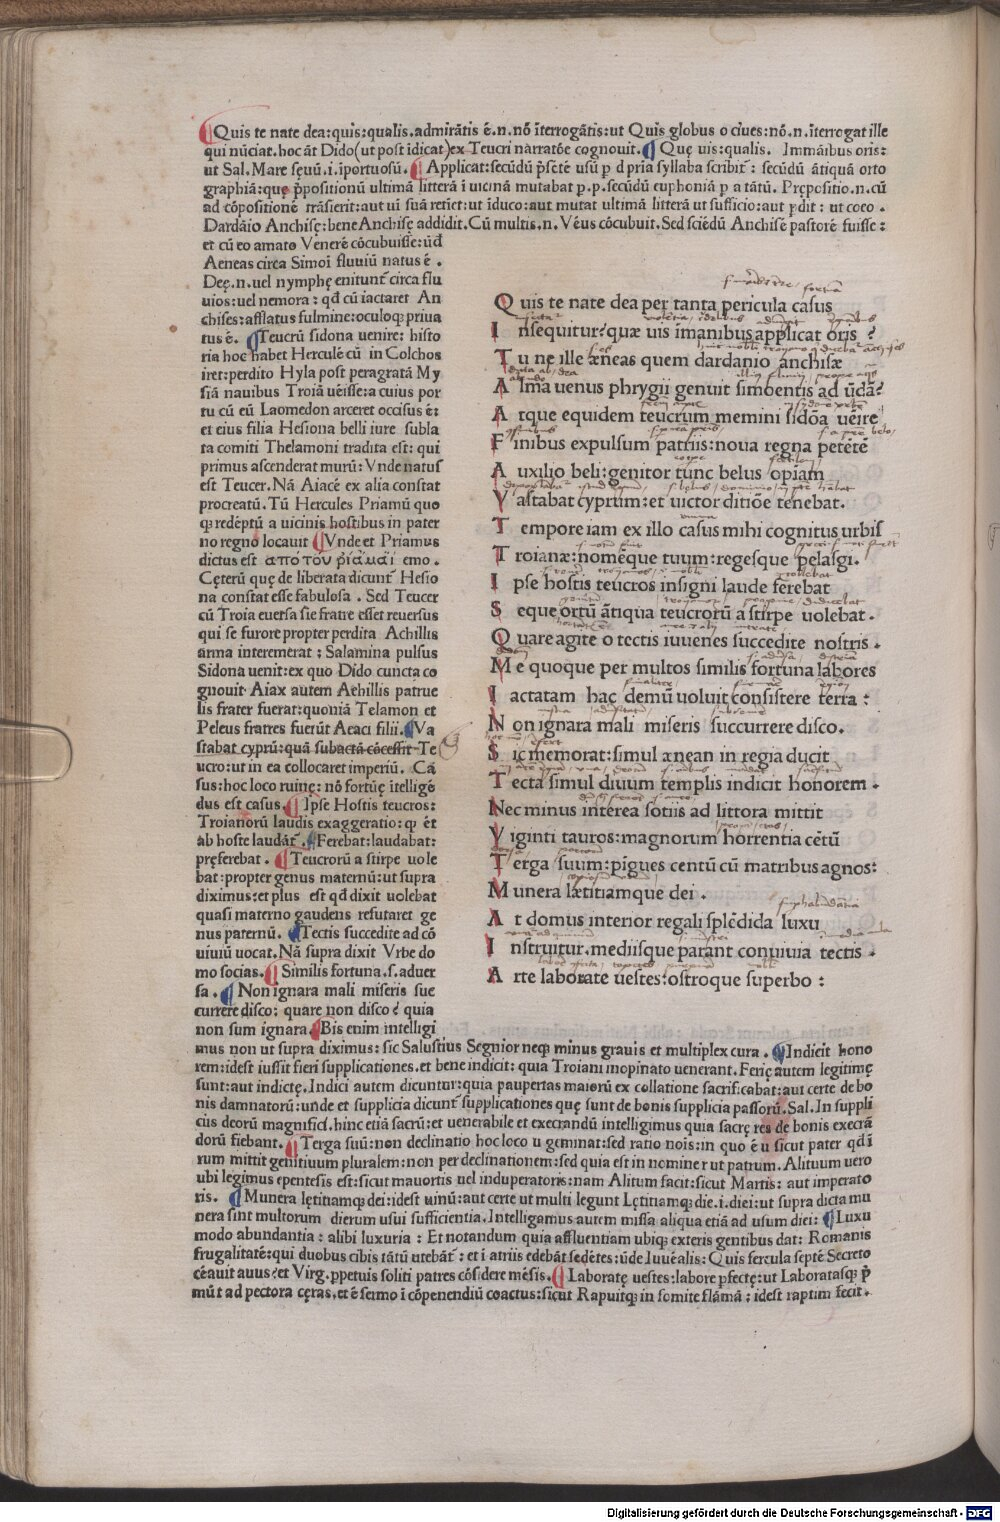 Quis te nate dea:quis:qualis.admirãtis ẽ.n.nõ ĩterrogãtis:ut Quis globus o ciues:nõ.n.ĩterrogat ille
qui nũciat.hoc ãt Dido(ut post ĩdicat)ex Teucri narratõe cognouit. Quę uis:qualis. Immãibus oris:
ut Sal. Mare sęuũ.i.ĩportuosũ. Applicat:secũdũ p̃sẽtẽ usũ p d pria syllaba scribit̃: secũdũ ãtiquã orto
graphiã:que p̃positionũ ultimã litterã ĩ uicinã mutabat p.p.secũdũ euphoniã p a tãtũ. Prępositio.n.cũ
ad cõpositionẽ trãsierit:aut ui suã retiet:ut ĩduco:aut mutat ultimã litterã ut sufficio:aut pdit: ut coeo.
Dardãio Anchisę:bene Anchisę addidit.Cũ multis.n.Vẽus cõcubuit.Sed sciẽdũ Anchisẽ pastorẽ fuisse:
et cũ eo amato Venerẽ cõcubuisse:ũd
Aeneas circa Simoĩ fluuiũ natus ẽ.
Deę.n.uel nymphę enitunt̃ circa flu
uios:uel nemora: qd cũ iactaret An
chises:afflatus fulmine:oculoq; priua
tus ẽ. Teucrũ sidona uenire: histo
ria hoc habet Herculẽ cũ in Colchos
iret:perdito Hyla post peragratã My
siã nauibus Troiã uẽisse:a cuius por
tu cũ eũ Laomedon arceret occisus ẽ:
et eius filia Hesiona belli iure subla
ta comiti Thelamoni tradita est: qui
primus ascenderat murũ: Vnde natus
est Teucer. Nã Aiacẽ ex alia constat
procreatũ. Tũ Hercules Priamũ quo
q; redẽptũ a uicinis hostibus in pater
no regno locauit Vnde et Priamus
dictus est ἀπὸ τοῦ ρίαμαι emo.
Cęterũ quę de liberata dicunt̃ Hesio
na constat esse fabulosa. Sed Teucer
cũ Troia euersa sie fratre esset reuersus
qui se furore propter perdita Achillis
arma interemerat: Salamina pulsus
Sidona uenit:ex quo Dido cuncta co
gnouit. Aiax autem Achillis patrue
lis frater fuerat:quoniã Telamon et
Peleus fratres fuerũt Aeaci filii. Va
stabat cyprũ:quã subactã cõcessit Te
ucro:ut in ea collocaret imperiũ. Ca
sus:hoc loco ruinę: nõ fortũę ĩtelligẽ
dus est casus. Ipse Hostis teucros:
Troianorũ laudis exaggeratio: q; ẽt
ab hoste laudãt̃. Ferebat:laudabat:
pręferebat. Teucrorũ a stirpe uole
bat:propter genus maternũ:ut supra
diximus:et plus est qd dixit uolebat
quasi materno gaudens refutaret ge
nus paternũ. Tectis succedite ad cõ
uiuiũ uocat. Nã supra dixit Vrbe do
mo socias. Similis fortuna.s.aduer
sa. Non ignara mali miseris suc
currere disco: quare non disco ẽ quia
non sum ignara. Bis enim intelligi
mus non ut supra diximus: sic Salustius Segnior neq; minus grauis et multiplex cura. Indicit hono
rem:idest iussit fieri supplicationes.et bene indicit: quia Troiani inopinato uenerant. Ferię autem legitimę
sunt:aut indictę. Indici autem dicuntur:quia paupertas maiorũ ex collatione sacrificabat:aut certe de bo
nis damnatorũ:unde et supplicia dicunt̃ supplicationes quę sunt de bonis supplicia passorũ.Sal.In suppli
ciis deorũ magnifici.hinc etiã sacrũ:et uenerabile et execrandũ intelligimus quia sacrę res de bonis execrã
dorũ fiebant. Terga suũ:non declinatio hoc loco u geminat:sed ratio nois:in quo ẽ u sicut pater qd ĩ
rum mittit genitiuum pluralem:non per declinationem:sed quia est in nomine r ut patrum. Alituum uero
ubi legimus epentesis est:sicut mauortis uel induperatoris:nam Alitum facit:sicut Martis: aut imperato
ris. Munera lętitiamq; dei:idest uinũ:aut certe ut multi legunt Lętitiamq; die.i.diei:ut supra dicta mu
nera sint multorum dierum usui sufficientia.Intelligamus autem missa aliqua etiã ad usum diei: Luxu
modo abundantia: alibi luxuria: Et notandum quia affluentiam ubiq; exteris gentibus dat: Romanis
frugalitatẽ:qui duobus cibis tãtũ utebãt̃: et ĩ atriis edebãt sedẽtes:ũde Iuuẽalis:Quis fercula septẽ Secreto
cẽauit auus:et Virg.ppetuis soliti patres cõsidere mẽsis. Laboratę uestes:labore pfectę:ut Laboratasq; p̃
mũt ad pectora cęras.et ẽ sermo ĩ cõpendiũ coactus:sicut Rapuitq; in fomite flãmã: idest raptim fecit.
Quis te nate dea per tanta pericula casus
Insequitur?quæ uis ĩmanibus applicat oris?
Tu ne ille æneas quem dardanio anchisæ
Alma uenus phrygii genuit simoentis ad ũdã?
Atque equidem teucrum memini sidõa uẽire
Finibus expulsum patriis:noua regna petẽtẽ
Auxilio beli:genitor tũnc belus opĩam
Vastabat cyprum:et uictor ditiõe tenebat.
Tempore iam ex illo casus mihi cognitus urbis
Troianæ:nomẽque tuum:regesque pelasgi.
Ipse hostis teucros insigni laude ferebat
Seque ortũ ãtiqua teucrorũ a stirpe uolebat.
Quare agite o tectis iuuenes succedite nostris.
Me quoque per multos similis fortuna labores
Iactatam hac demũ uoluit consistere terra:
Non ignara mali miseris succurrere disco.
Sic memorat:simul ænean in regia ducit
Tecta simul diuum templis indicit honorem.
Nec minus interea sotiis ad littora mittit
Viginti tauros:magnorum horrentia cẽtũ
Terga suum:pĩgues centũ cũ matribus agnos:
Munera lætitiamque dei.
At domus interior regali splẽdida luxu
Instruitur.mediisque parant conuiuia tectis.
Arte laborate uestes:ostroque superbo:
Digitalisierung gefördert durch die Deutsche Forschungsgemeinschaft - DFG